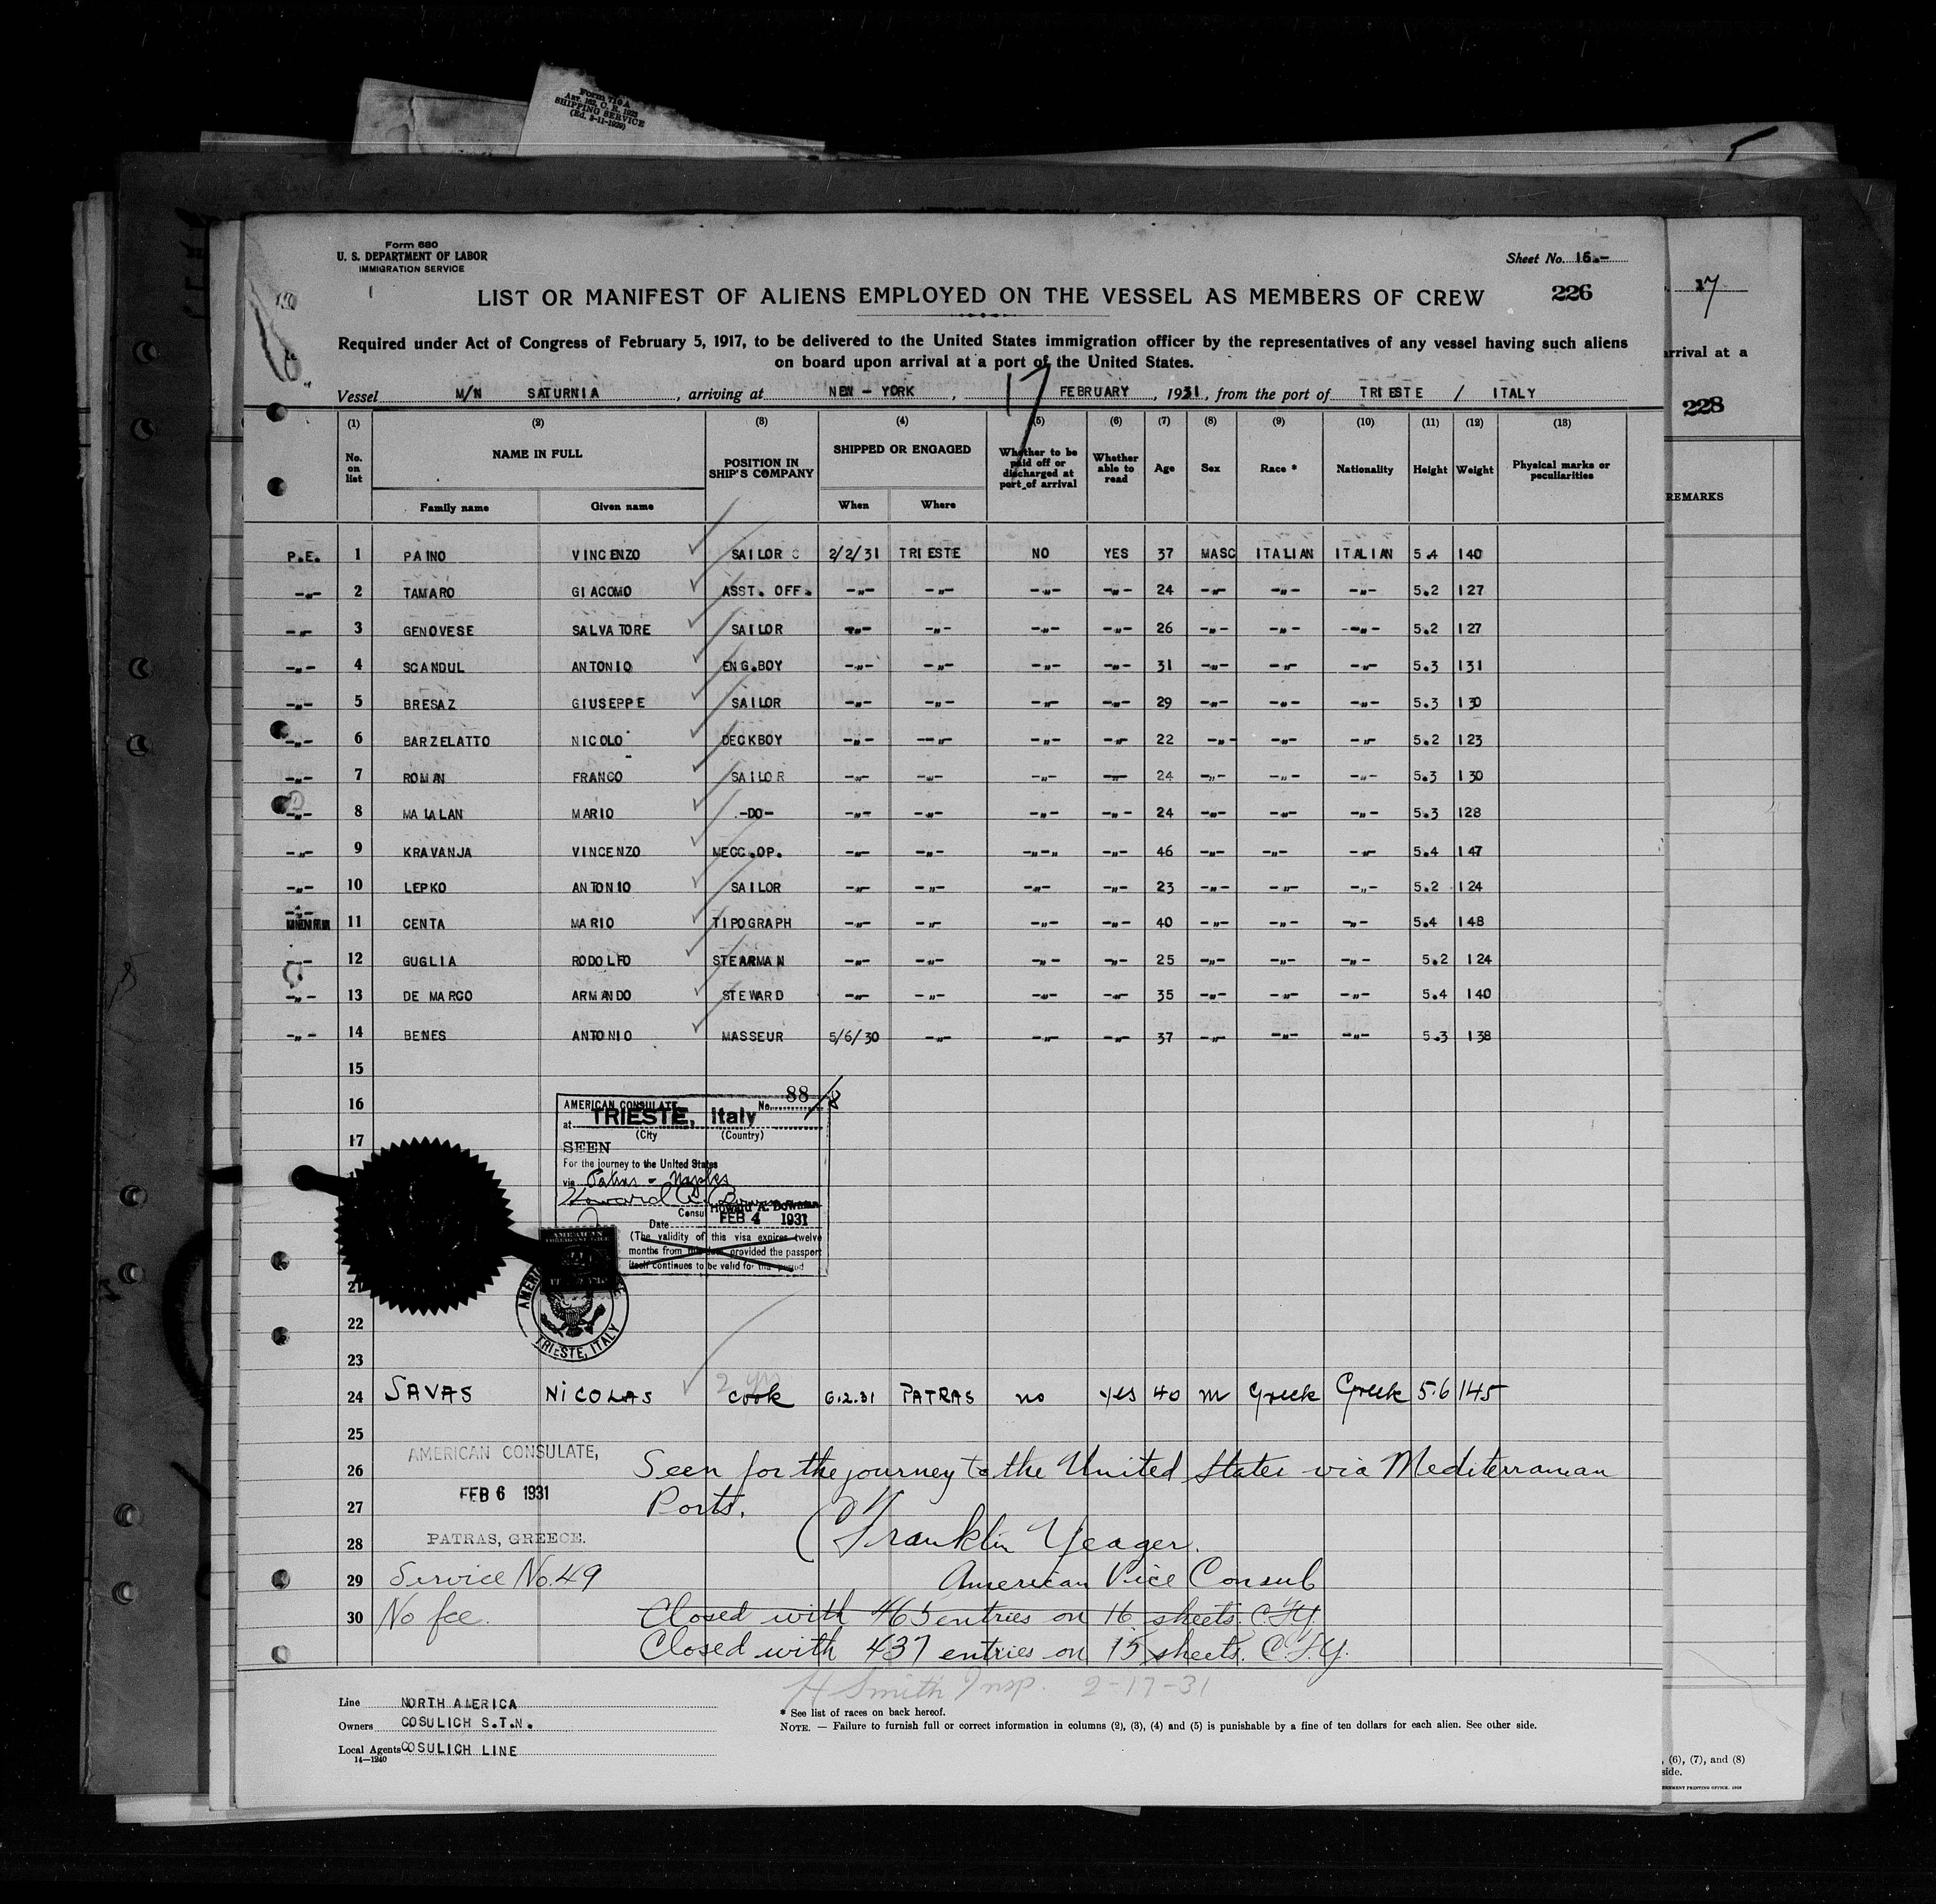 Form 710 A
Art. 162, C. R. 1923
SHIPPING SERVICE
(Ed. 3-11-1929)
Form 680
U. S. DEPARTMENT OF LABOR
IMMIGRATION SERVICE
Sheet No. 16.-
LIST OR MANIFEST OF ALIENS EMPLOYED ON THE VESSEL AS MEMBERS OF CREW 226
Required under Act of Congress of February 5, 1917, to be delivered to the United States immigration officer by the representatives of any vessel having such aliens
on board upon arrival at a port of the United States.
Vessel M/N SATURNIA, arriving at NEW-YORK, 17 FEBRUARY, 1931, from the port of TRIESTE / ITALY
(1) (2) (3) (4) (5) (6) (7) (8) (9) (10) (11) (12) (13)
No. on list NAME IN FULL POSITION IN SHIP'S COMPANY SHIPPED OR ENGAGED Whether to be paid off or discharged at port of arrival Whether able to read Age Sex Race * Nationality Height Weight Physical marks or peculiarities
Family name Given name When Where
P.E. 1 PAINO VINCENZO SAILOR 2/2/31 TRIESTE NO YES 37 MASC ITALIAN ITALIAN 5.4 140
-"- 2 TAMARO GIACOMO ASST. OFF. -"- -"- -"- -"- 24 -"- -"- -"- 5.2 127
-"- 3 GENOVESE SALVATORE SAILOR -"- -"- -"- -"- 26 -"- -"- -"- 5.2 127
-"- 4 SCANDUL ANTONIO ENG.BOY -"- -"- -"- -"- 31 -"- -"- -"- 5.3 131
-"- 5 BRESAZ GIUSEPPE SAILOR -"- -"- -"- -"- 29 -"- -"- -"- 5.3 130
-"- 6 BARZELATTO NICOLO DECKBOY -"- -"- -"- -"- 22 -"- -"- -"- 5.2 123
-"- 7 ROMAN FRANCO SAILOR -"- -"- -"- -"- 24 -"- -"- -"- 5.3 130
-"- 8 MALALAN MARIO -DO- -"- -"- -"- -"- 24 -"- -"- -"- 5.3 128
-"- 9 KRAVANJA VINCENZO MECC.OP. -"- -"- -"-" -"- 46 -"- -"- -"- 5.4 147
-"- 10 LEPKO ANTONIO SAILOR -"- -"- -"- -"- 23 -"- -"- -"- 5.2 124
-"- 11 CENTA MARIO TIPOGRAPH -"- -"- -"- -"- 40 -"- -"- -"- 5.4 148
-"- 12 GUGLIA RODOLFO STEARMAN -"- -"- -"- -"- 25 -"- -"- -"- 5.2 124
-"- 13 DE MARCO ARMANDO STEWARD -"- -"- -"- -"- 35 -"- -"- -"- 5.4 140
-"- 14 BENES ANTONIO MASSEUR 5/6/30 -"- -"- -"- 37 -"- -"- -"- 5.3 138
15
16
17
21
22
23
AMERICAN CONSULATE No. 88/8
at TRIESTE, Italy
(City (Country)
SEEN
For the journey to the United States
via Patras - Naples
Howard A. Bowman
Consul Howard A. Bowman
Date FEB 4 1931
(The validity of this visa expires twelve
months from this date provided the passport
itself continues to be valid for the period
AMERICAN
TRIESTE, ITALY
2 yrs
24 SAVAS NICOLAS cook 6.2.31 PATRAS no yes 40 m Greek Greek 5.6 145
25
AMERICAN CONSULATE,
26 Seen for the journey to the United States via Mediterranean
FEB 6 1931
27 Ports.
28 PATRAS, GREECE. C Franklin Yeager.
29 Service No. 49 American Vice Consul
30 No fee. Closed with 465 entries on 16 sheets. C.F.Y.
Closed with 437 entries on 15 sheets. C.F.Y.
H Smith Insp. 2-17-31
Line NORTH AMERICA
Owners COSULICH S.T.N.
Local Agents COSULICH LINE
14-1240
* See list of races on back hereof.
NOTE. — Failure to furnish full or correct information in columns (2), (3), (4) and (5) is punishable by a fine of ten dollars for each alien. See other side.
17
arrival at a
228
REMARKS
, (6), (7), and (8)
side.